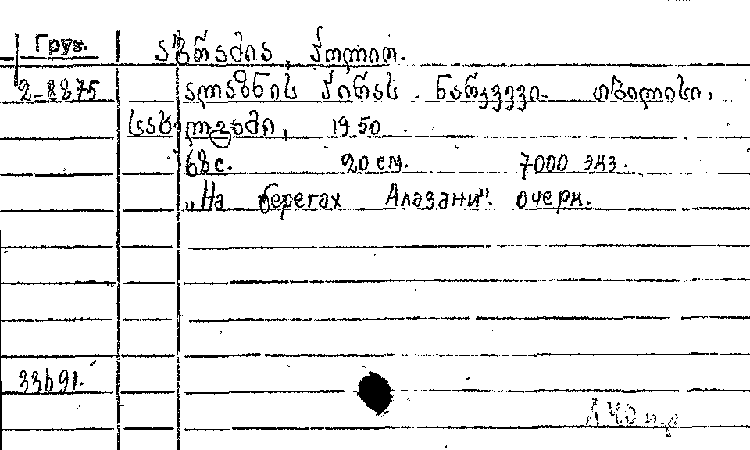 Груз.
2-8875
ალაზნის პირას. ნარკვევი. თბილისი,
საბლიტგამი, 1950
68 с. 20 см. 7000 экз.
„На берегах Алазани". очерк.
33691.